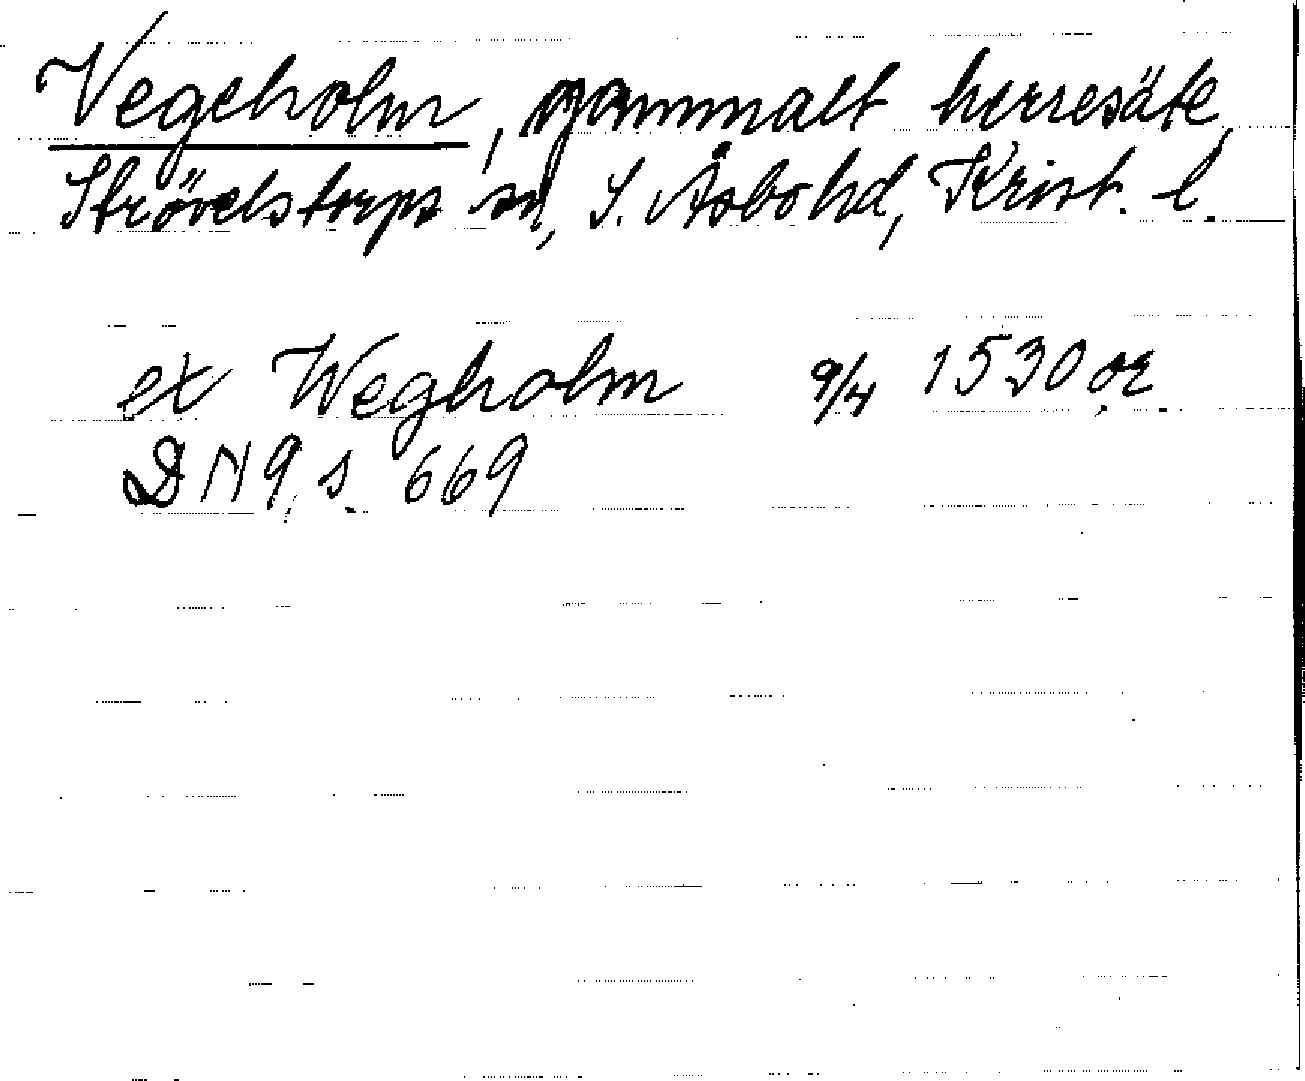 Vegeholm, gammalt herresäte,
Strövelstorps sn, S. Åsbo hd, Krist. l.
ex Wegholm 9/4 1530 or
DN 9, s. 669